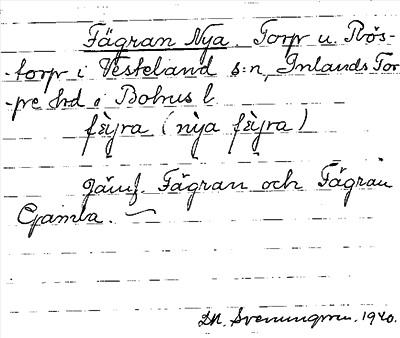 Fägran Nya. Torp u. Rös-
-torp i Västerland s:n, Inlands Tor
-pe hd i Bohus l
fèjra (nỳa fèjra)
jämf. Fägran och Fägran
Gamla.
D.N. Svenungsson. 1940.